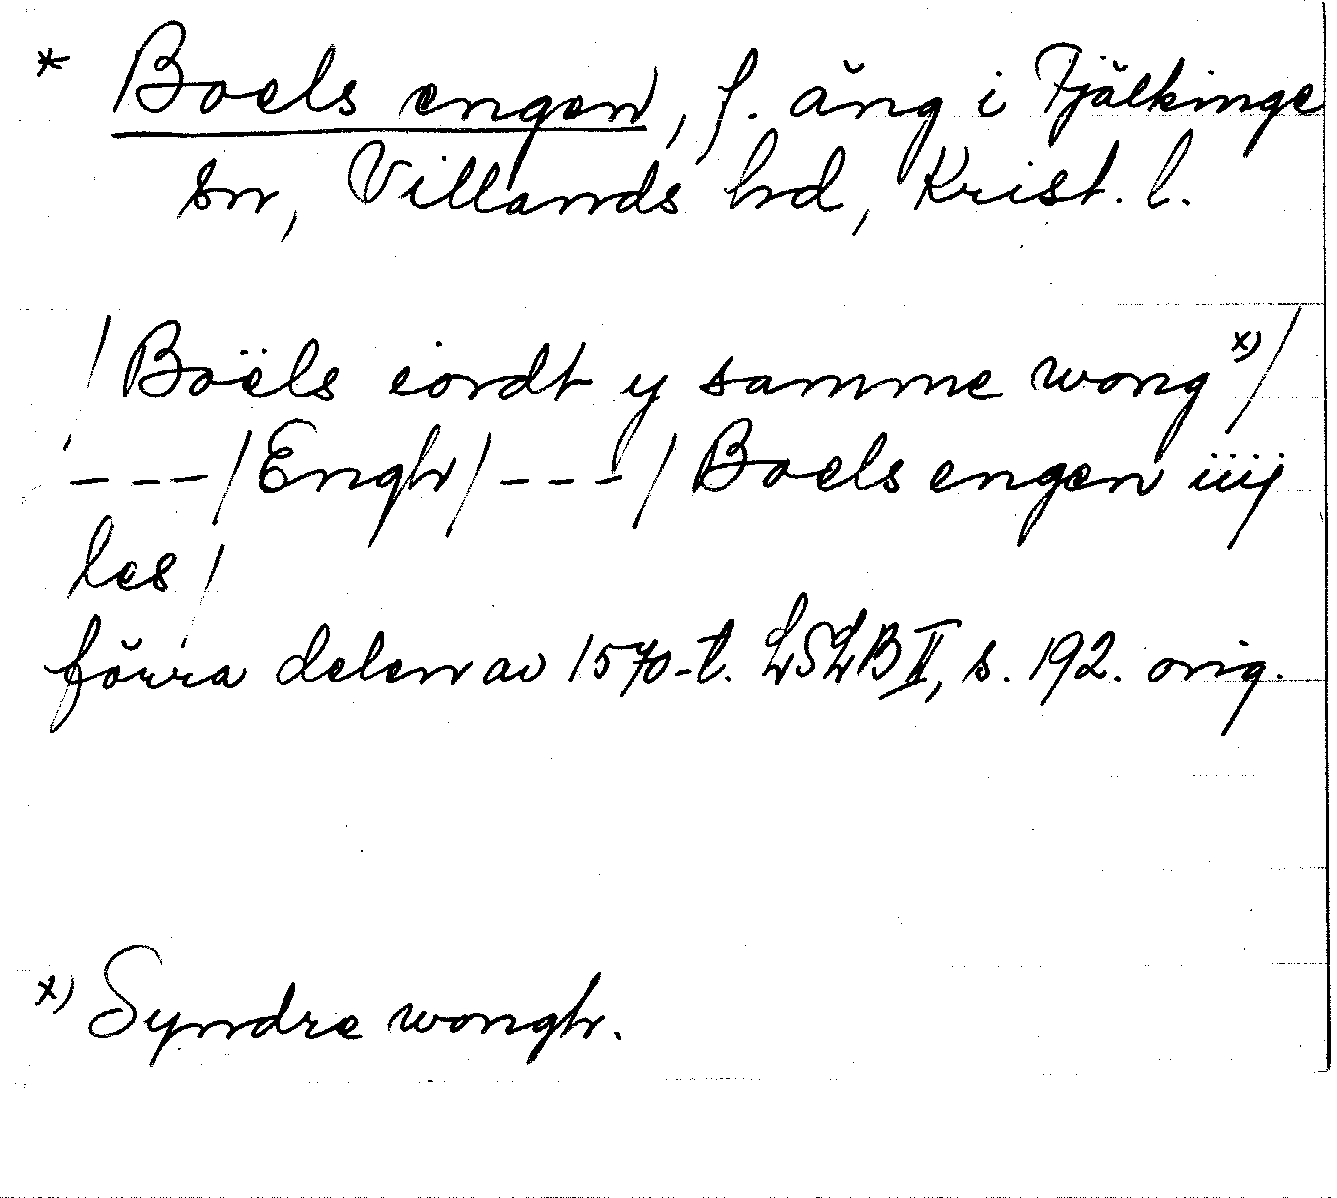 * Boels engen, f. äng i Fjälkinge
sn, Villands hd, Krist. l.
/Boëls iordt y samme wong x)/
---/Engh/---/Boels engen iiij
les/
förra delen av 1570-t. LSLB II, s. 192. orig.
x) Syndre wongh.